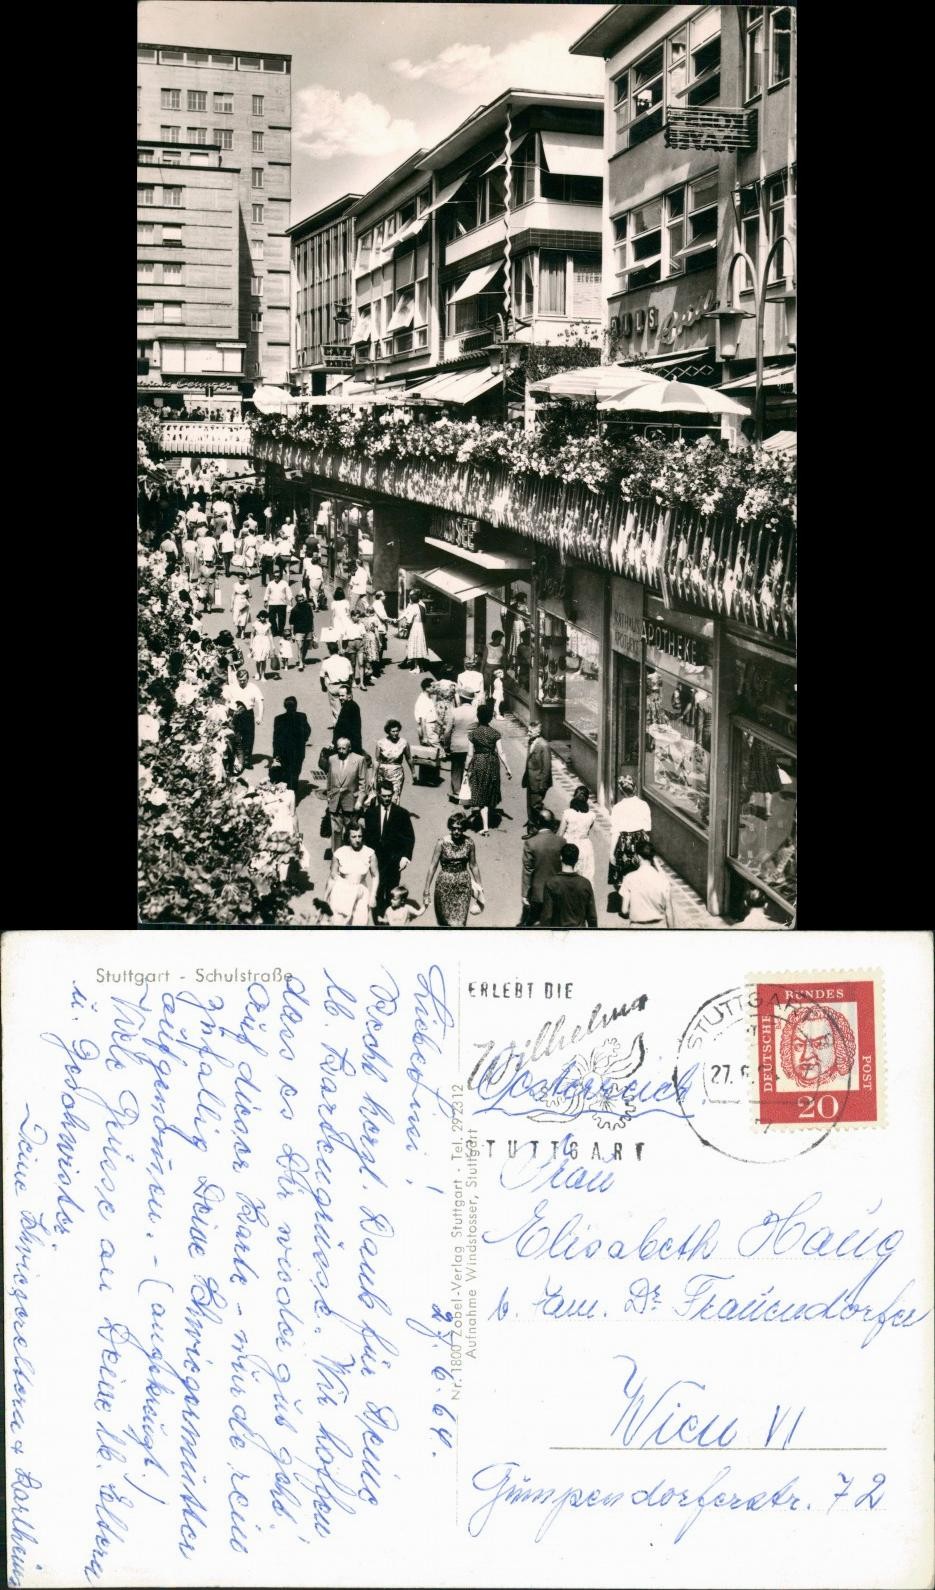 CAFE
RATHAUS
APOTHEKE
APOTHEKE
Stuttgart - Schulstraße
27.6.64.
Liebe Lisi!
Recht herzl. Dank für Deine
lb. Kartengrüsse. Wir hoffen
dass es Dir wieder gut geht!
Auf dieser Karte - wurde rein
zufällig Deine Schwiegermutter
aufgenommen. - (angekreuzt!)
Viele Grüsse an Deine lb. Eltern
u. Geschwister
Deine Schwiegereltern + Karlheinz
Nr. 1800 Zobel-Verlag Stuttgart - Tel. 292312
Aufnahme Windstosser, Stuttgart
ERLEBT DIE
Wilhelma
STUTTGART
STUTTGART
27.6.
DEUTSCHE
BUNDES
POST
20
Oesterreich
Frau
Elisabeth Haug
b. Fam. Dr. Frauendorfer
Wien VI
Gumpendorferstr. 72